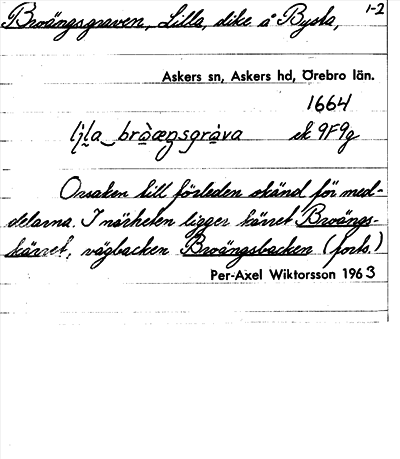 Broängsgraven, Lilla, dike å Bysta, 1-2
Askers sn, Askers hd, Örebro län.
1664
lịḷa_bròæŋsgràva ek 9F9g
Orsaken till förleden okänd för med-
delarna. I närheten ligger kärret Broängs-
kärret, vägbacken Broängsbacken (forts.)
Per-Axel Wiktorsson 1963